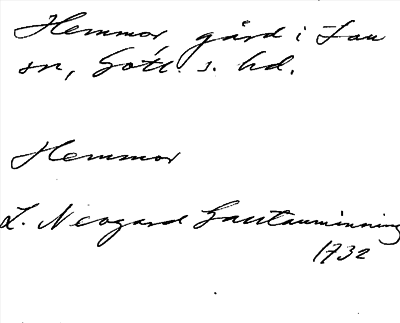 Hemmor, gård i Lau
sn, Gotl. s. hd.
Hemmor
L. Neogard Gautauminning
1732